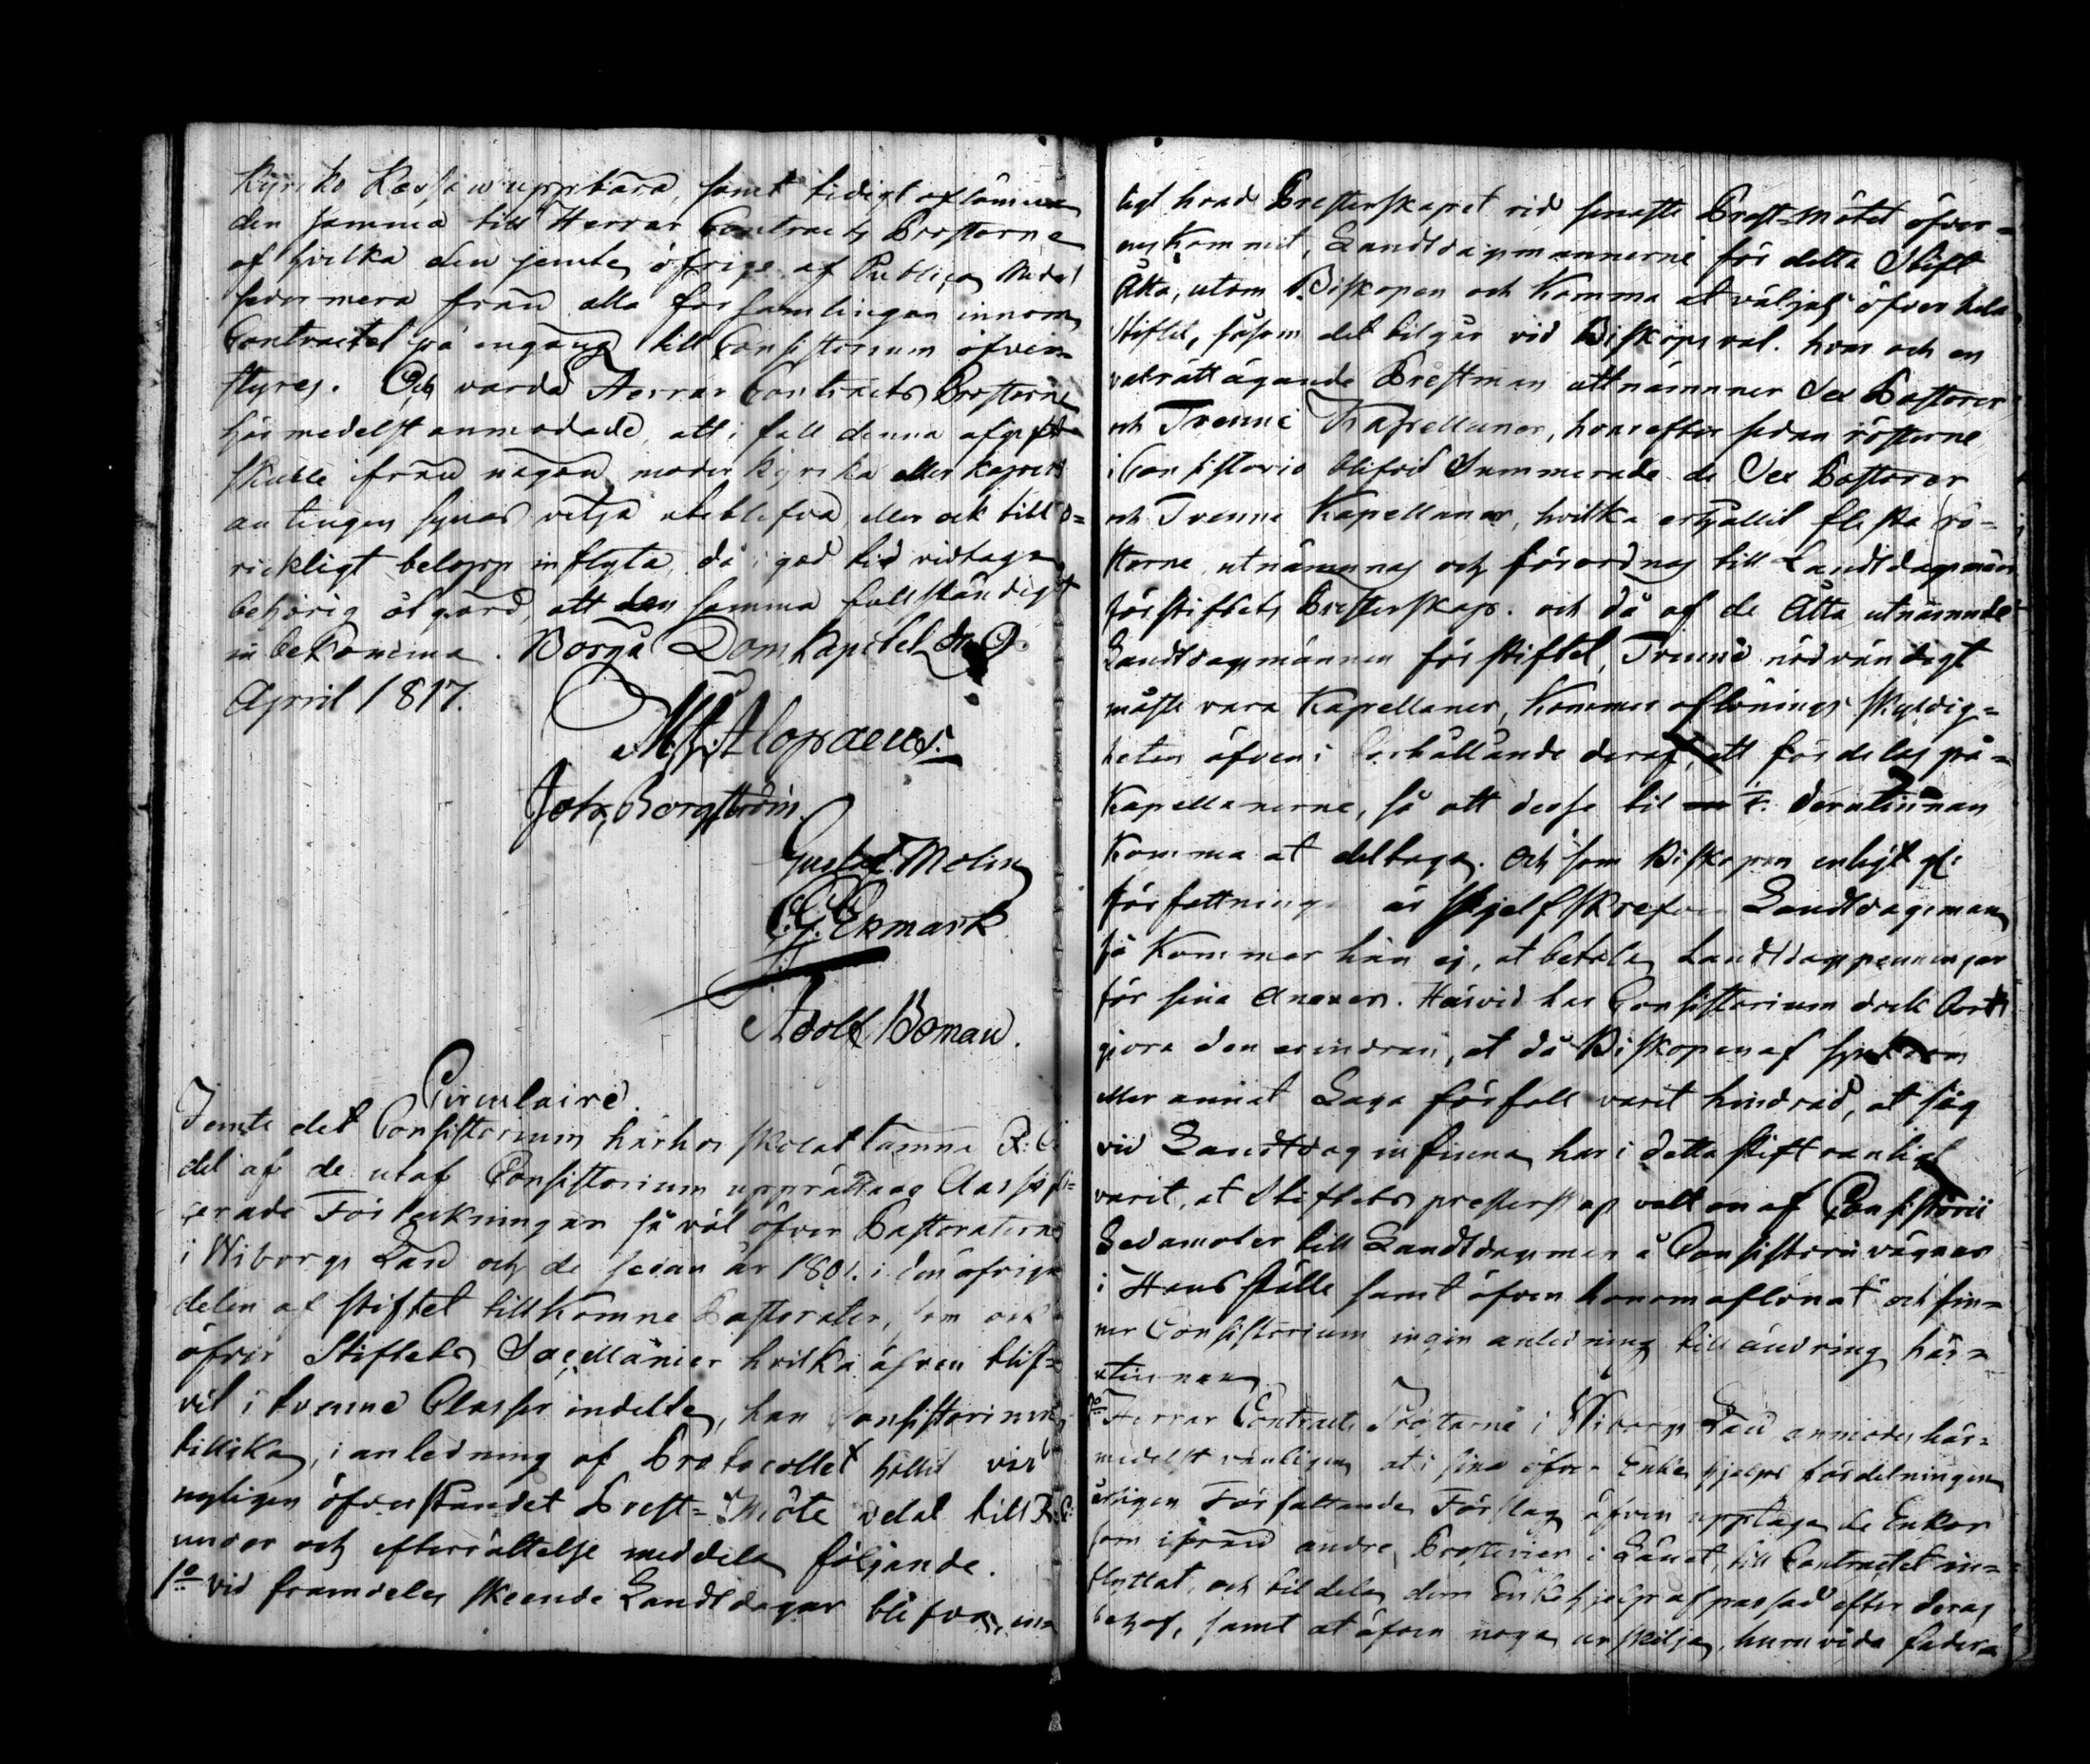 Kyrcko Kassan uppbära, samt tidigt aflämna
den samma till Herrar Contracts Prostarne
af hvilka den jemte öfrige af Publiqa Medel
sedermera från alla församlingar innom
Contractet på engång till Consistorium öfver=
styres. Och varda Herrar Contracts Prostarne
härmedelst anmodade, att i fall denna afgift
skulle ifrån någon moder kyrka eller kapell
antingen synas vilja uteblifva eller ock till o=
ricktigt belopp inflyta, då i god tid vidtaga
behörig åtgärd, att den samma fullständigt
inbekomma. Borgå Domkapitel d. 9.
April 1817.
M. Alopaeus.
Joh. Borgström.
Gustaf Molin
C. G. Ekmark
Adolf Boman.
Circulaire.
Jemte det Consistorium härhos skolat lämna R: C:
del af de utaf Consistorium upprättade Classifi=
cerade Förteckningar så väl öfver Pastoraterne
i Wiborgs Län och de sedan år 1801. i den öfriga
delen af stiftet tillkomne Pastorater, som ock
öfver Stiftets Sacellanier hvilka äfven blif=
vit i tvenne Classer indelte, har Consistorium
tillika, i anledning af Protocollet hållit vid
nyligen öfverståndet Prest=Möte velat till R: C:
under och efterrättelse meddela följande.
1o vid framdeles skeende Landtdagar blifva, en=
ligt hvad Presterskapet vid senaste Prest-Mötet öfver=
enskommit, Landtdagsmannerne för detta Stift
Åtta, utom Biskopen och komma at väljas öfver hela
stiftet, såsom det tilgår vid Biskops val. hvar och en
valrättägande Prestman utnämner Sex Pastorer
och Tvenne Kapellaner, hvarefter sedan rösterne
i Consistorio blifvit Summerade de Sex Pastorer
och Tvenne Kapellaner, hvilka erhållit flesta rö=
sterne utnämnas och förordnas till Landtdagsmän
för stiftets Presterskap. och då af de Åtta utnämnde
Landtdagsmännen för stiftet, Tvenne nödvändigt
måste vara Kapellaner, kommer aflönings skyldig=
heten äfven i förhållande deraf, att fördelas på
Kapellanerne, så att desse til derutinnan
komma at deltaga. Och som Biskopen enligt gl:
författning är sjelfskrefven Landtdagsman
så kommer han ej, at betala Landtdagspenningar
för sina Annexer. Härvid har Consistorium dock bordt
giöra den erindran, at då Biskopen af sjukdom
eller annat Laga förfall varit hindrad, at sig
vid Landtdag infinna har i detta stift vanligt
varit, at Stiftets presterskap valt en af Consistorii
Ledamoter till Landtdagsman å Consistorii vägnar
i Hans ställe samt äfven honom aflönat och fin=
ner Consistorium ingen anledning till ändring här=
utinnan
2o Herrar Contracts Prostarne i Wiborgs Län anmodas här=
medelst vänligen at i sina öfver Enke hjelps fördelningen
årligen Författande Förslag äfven upptaga de Enkor
som ifrån andre Prosterier i Länet, till Contractet in=
flyttat, och tildela dem Enkehjelp afpassad efter deras
behof, samt at äfven noga urskilja, huruvida sådana